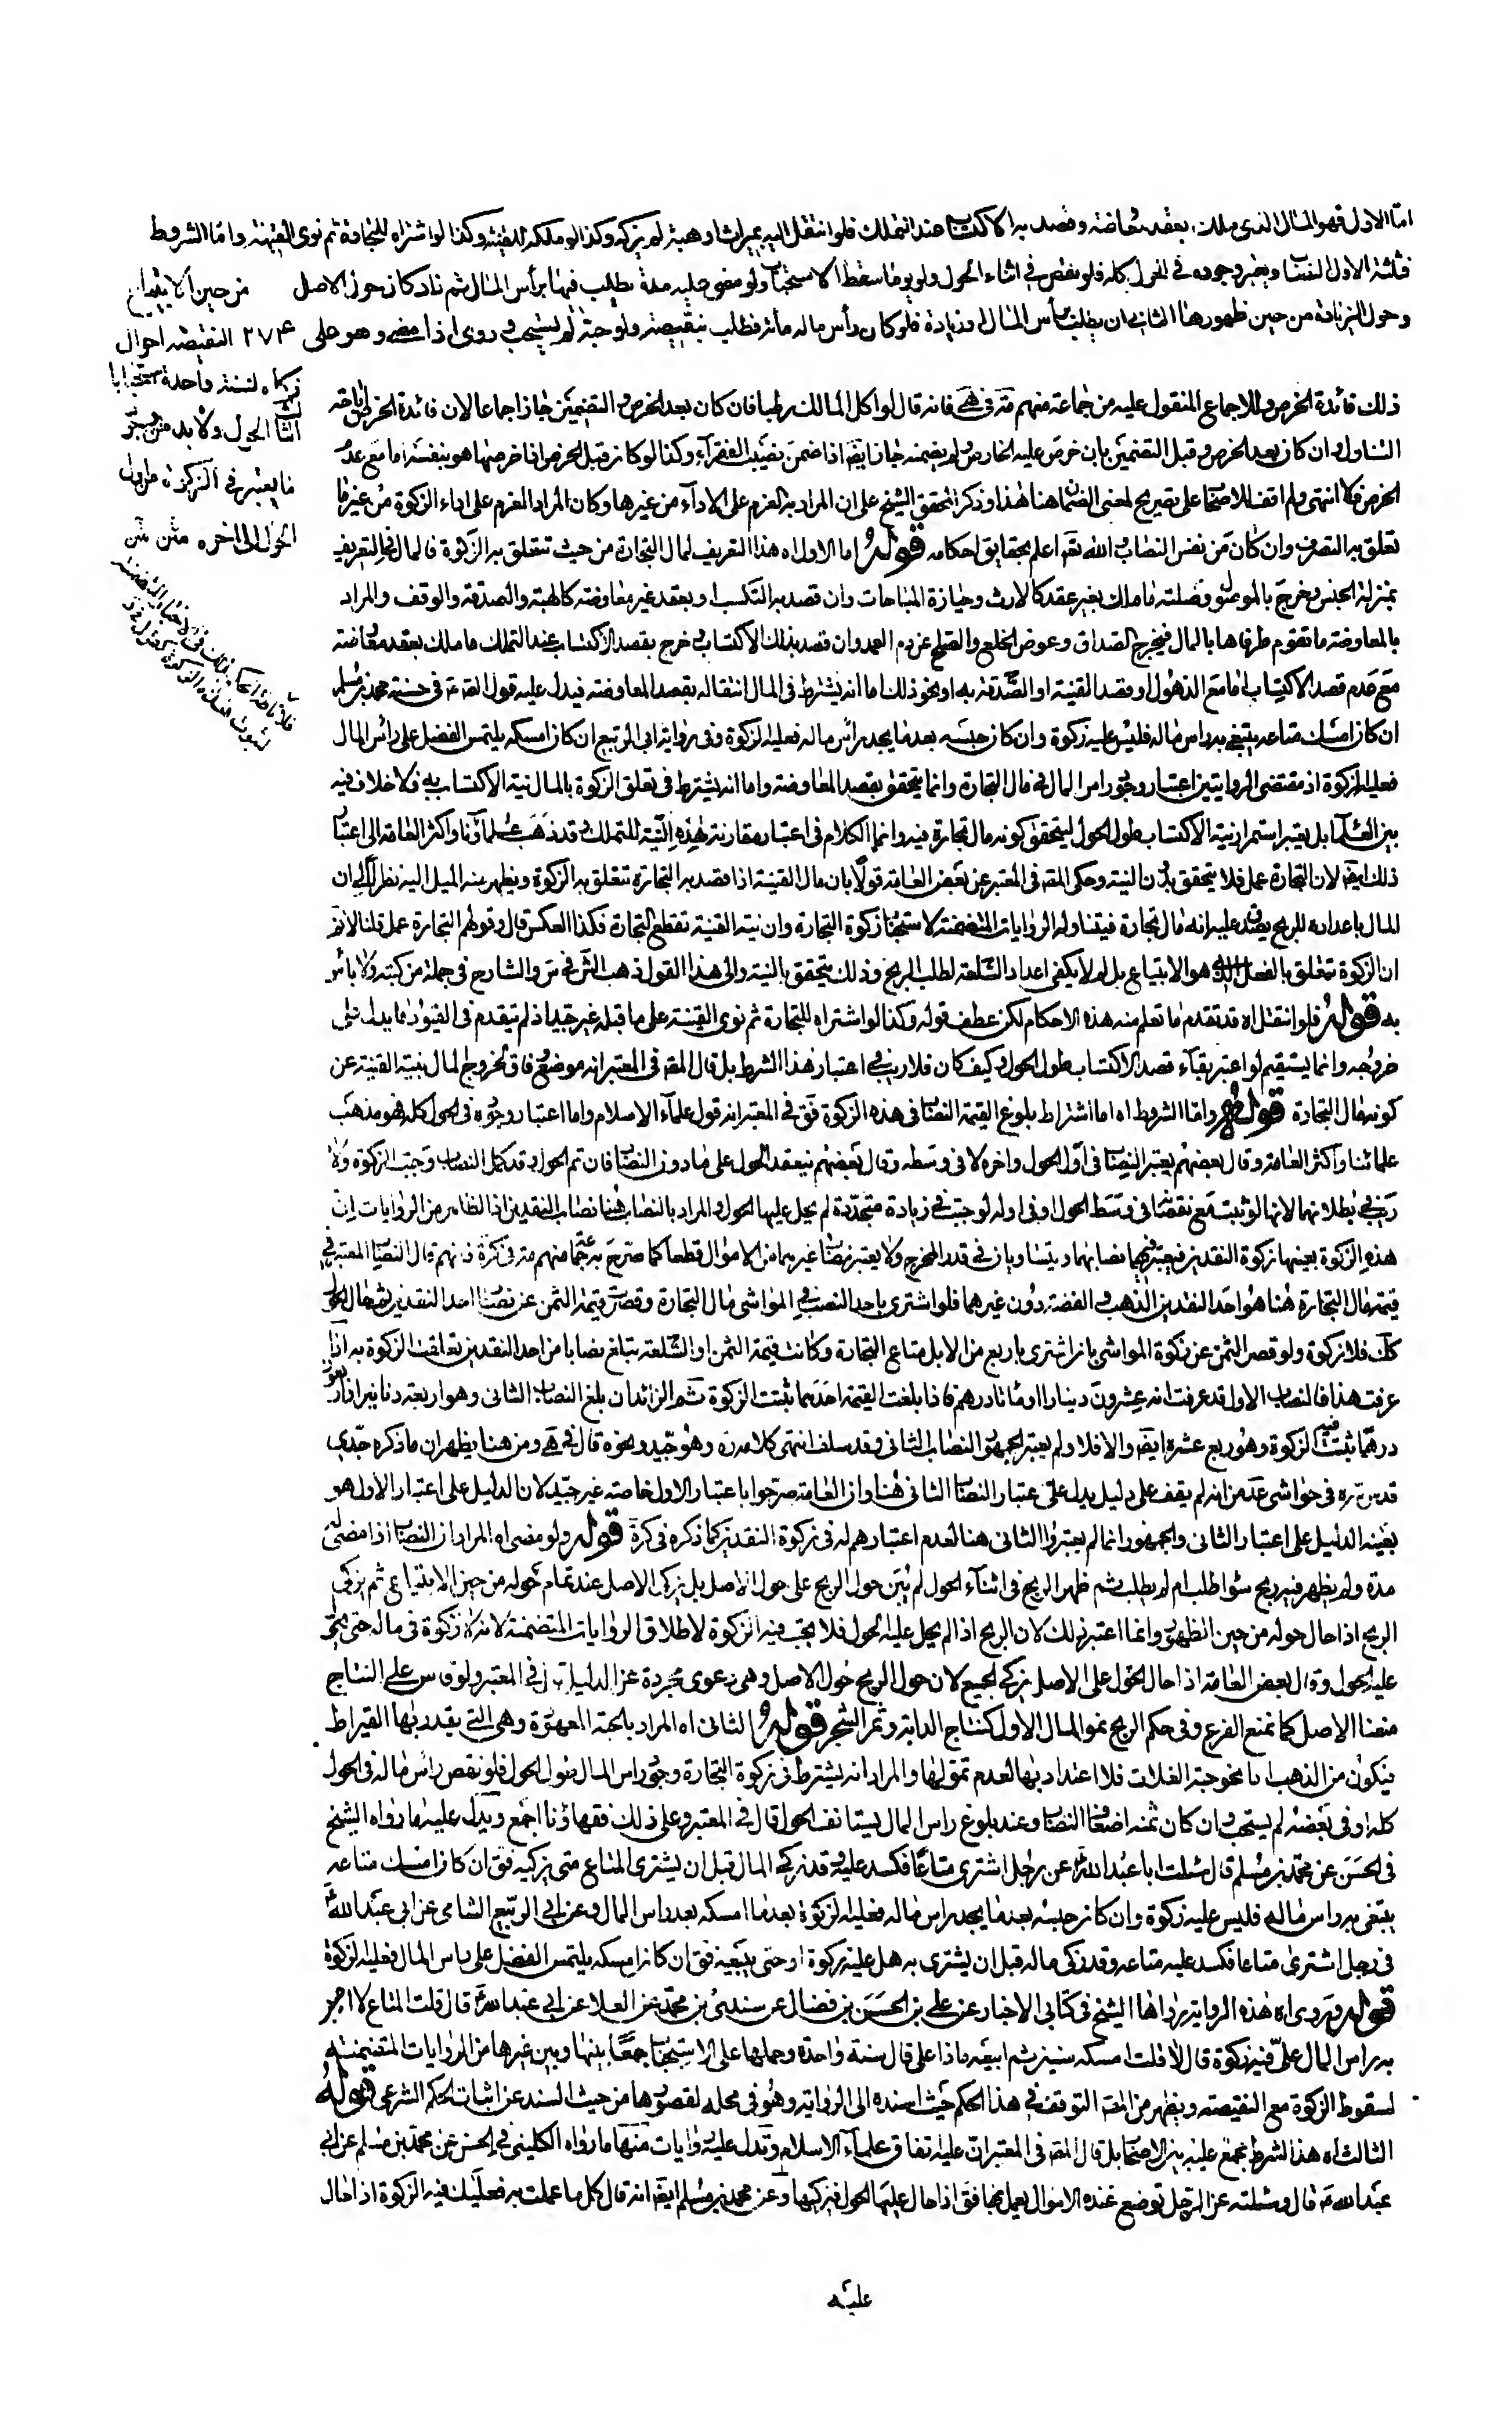 امّا الاول فهو المال الذى ملك بعقد معاوضة وقصد به الاكتساب عند التملك فلو انتقل اليه بميراث او هبة لم يزكه وكذا لو ملكه للقنية وكذا لو اشتراه للتجارة ثم نوى القنية وامّا الشروط
فثلثة الاول النصاب ويعتبر وجوده فى الحول كله فلو نقص فى اثناء الحول ولو يوما سقط الاستحباب ولو مضى عليه مدة يطلب فيها برأس المال ثم زاد كان حول الاصل من حين الابتياع
وحول الزيادة من حين ظهورها الثانى ان يطلب برأس المال او زيادة فلو كان رأس ماله مائة فطلب بنقيصة ولو حبة لم يستحب و روى اذا مضى وهو على ٢٧٤ النقيصة احوال
زكاه لسنة واحدة استحبابا
الثالث الحول ولا بد من وجود
ما يعتبر فى الزكوة من اول
الحول الى اخره متن متن
ذلك فائدة الخرص وللاجماع المنقول عليه من جماعة منهم فانه قال لو اكل المالك رطبا فان كان بعد الخرص والتضمين جاز اجماعا لان فائدة الخرص اباحة
التناول وان كان بعد الخرص وقبل التضمين بان خرص عليه الخارص ولم يضمنه جاز ايضا اذا ضمن نصيب الفقرآء وكذا لو كان قبل الخرص اذا خرصها هو بنفسه اما مع عدم
الخرص فلا انتهى ولم اقف للاصحاب على تصريح لمعنى الضمان هنا هذا وذكر المحقق الشيخ على ان المراد به العزم على الادآء من غيرها وكان المراد العزم على اداء الزكوة من غير ما
تعلق به التصرف وان كان من نفس النصاب والله تعالى اعلم بحقايق احكامه قوله اما الاول اه هذا التعريف لمال التجارة من حيث تتعلق به الزكوة فالمال فى التعريف
بمنزلة الجنس وخرج بالموصول وصلته ما ملك بغير عقد كالارث وحيازة المباحات وان قصد به التكسب او بعقد غير معاوضة كالهبة والصدقة والوقف والمراد
بالمعاوضة ما تقوم طرفاها بالمال فيخرج الصداق وعوض الخلع والصلح عن دم العمد وان قصد بذلك الاكتساب و خرج بقصد الاكتساب عند التملك ما ملك بعقد معاوضة
مع عدم قصد الاكتساب اما مع الذهول او قصد القنية او الصّدقة به او نحو ذلك اما انه يشترط فى المال انتقاله بقصد المعاوضة فيدل عليه قول الصادق فى حسنة محمد بن مسلم
ان كان امسك متاعه يبتغى به رأس ماله فليس عليه زكوة وان كان حبسه بعد ما يجد رأس ماله فعليه الزكوة وفى رواية ابى الربيع ان كان امسكه يلتمس الفضل على رأس المال
فعليه الزكوة اذ مقتضى الروايتين اعتبار وجود رأس المال فى مال التجارة وانما يتحقق بقصد المعاوضة واما انه يشترط فى تعلق الزكوة بالمال نية الاكتساب به فلا خلاف فيه
بين العلمآء بل يعتبر استمرار نية الاكتساب طول الحول ليتحقق كونه مال تجارة فيه وانما الكلام فى اعتبار مقارنة هذه النية للتملك وقد ذهب علمآؤنا واكثر العامة الى اعتبار
ذلك ايضا لان التجارة عمل فلا يتحقق بدون النية وحكى المصنف فى المعتبر عن بعض العامة قولا بان مال القنية اذا قصد به التجارة تتعلق به الزكوة ويظهر منه الميل اليه نظرا الى ان
المال باعداده للربح يصدق عليه انه مال تجارة فيتناوله الروايات المتضمنة لاستحباب زكوة التجارة وان نية القنية تقطع التجارة فكذا العكس قال وقولهم التجارة عمل قلنا لا نم
ان الزكوة تتعلق بالفعل الذى هو الابتياع بل لم لا يكفى اعداد السّلعة لطلب الربح وذلك يتحقق بالنية والى هذا القول ذهب فى س والشارح فى جملة من كتبه ولا بأس
به قوله فلو انتقل اه قد تقدم ما تعلم منه هذه الاحكام لكن عطف قوله وكذا لو اشتراه للتجارة ثم نوى القنية على ما قبله غير جيد اذ لم يتقدم فى القيود ما يدل على
خروجه وانما يستقيم لو اعتبر بقآء قصد الاكتساب طول الحول وكيف كان فلا ريب فى اعتبار هذا الشرط بل قال المصنف فى المعتبر انه موضع وفاق لخروج المال بنية القنية عن
كونه مال التجارة قوله واما الشروط اه اما اشتراط بلوغ القيمة النصاب فى هذه الزكوة فقى فى المعتبر انه قول علمآء الاسلام واما اعتبار وجوده فى الحول كله فهو مذهب
علمائنا واكثر العامة وقال بعضهم يعتبر النصاب فى اوّل الحول واخره لا فى وسطه وقال بعضهم ينعقد الحول على ما دون النصاب فان تم الحول وقد كمل النصاب وجبت الزكوة ولا
ريب فى بطلانهما لانها لو ثبتت مع نقصانه فى وسط الحول او فى اوله لوجبت فى زيادة متجدّدة لم يحل عليها الحول والمراد بالنصاب هنا نصاب النقدين اذ الظاهر من الروايات ان
هذه الزكوة بعينها زكوة النقدين فيعتبر فيهما نصابهما ويتساويان فى قدر المخرج ولا يعتبر نصاب غيرهما من الاموال قطعا كما صرّح به جماعة منهم فى كرة قال النصاب المعتبر فى
قيمة مال التجارة هنا هو احد النقدين الذهب والفضة دون غيرهما فلو اشترى باحد النصب فى المواشى مال التجارة وقصرت قيمة الثمن عن نصاب احد النقدين ثم حال الحول
كذلك فلا زكوة ولو قصر الثمن عن زكوة المواشى بان اشترى باربع من الابل متاع التجارة وكانت قيمة الثمن او السّلعة تبلغ نصابا من احد النقدين تعلقت الزكوة به اذا
عرفت هذا فالنصاب الاول قد عرفت انه عشرون دينارا او مائتا درهم فاذا بلغت القيمة احدهما ثبتت الزكوة ثم الزائد ان بلغ النصاب الثانى وهو اربعة دنانير او اربعون
درهما ثبتت فيه الزكوة وهو ربع عشره ايضا والا فلا ولم يعتبر الجمهور النصاب الثانى وقد سلف انتهى كلامه وهو جيد ونحوه قال فى هى ومن هنا يظهر ان ما ذكره جدّى
قدس سره فى حواشى من انه لم يقف على دليل يدل على اعتبار النصاب الثانى هنا وان العامة صرّحوا باعتبار الاول خاصة غير جيّد لان الدليل على اعتبار الاول هو
بعينه الدليل على اعتبار الثانى والجمهور انما لم يعتبروا الثانى هنا لعدم اعتبارهم له فى زكوة النقدين كما ذكره فى كرة قوله ولو مضى اه المراد ان النصاب اذا مضى له
مدة ولم يظهر فيه ربح سوآء طلب ام لم يطلب ثم ظهر الربح فى اثنآء الحول لم يبن حول الربح على حول الاصل بل يزكى الاصل عند تمام حوله من حين الابتياع ثم يزكى
الربح اذا حال حوله من حين الظهور وانما اعتبر ذلك لان الربح اذا لم يحل عليه الحول فلا يجب فيه الزكوة لاطلاق الروايات المتضمنة لانه لا زكوة فى مال حتى يحول
عليه الحول وقال بعض العامة اذا حال الحول على الاصل يزكى الجميع لان حول الربح حول الاصل وهى دعوى مجردة عن الدليل قال فى المعتبر ولو قاس على النتاج
منعنا الاصل كما نمنع الفرع وفى حكم الربح نمو المال الاول كنتاج الدابة وثمر الشجر قوله الثانى اه المراد بالحبة المعهودة وهى التى يقدر بها القيراط
فيكون من الذهب اما نحو حبة الغلات فلا اعتداد بها لعدم تمولها والمراد انه يشترط فى زكوة التجارة وجود راس المال طول الحول فلو نقص رأس ماله فى الحول
كله او فى بعضه لم يستحب وان كان ثمنه اضعاف النصاب وعند بلوغ راس المال يستانف الحول قال فى المعتبر وعلى ذلك فقهاؤنا اجمع ويدل عليه ما رواه الشيخ
فى الحسن عن محمد بن مسلم قال سئلت ابا عبد الله عن رجل اشترى متاعا فكسد عليه وقد زكى المال قبل ان يشترى المتاع متى يزكيه فق ان كان امسك متاعه
يبتغى به رأس ماله فليس عليه زكوة وان كان حبسه بعد ما يجد راس ماله فعليه الزكوة بعد ما امسكه بعد راس المال وعن ابى الربيع الشامى عن ابى عبد الله
فى رجل اشترى متاعا فكسد عليه متاعه وقد زكى ماله قبل ان يشترى به هل عليه زكوة او حتى يبيعه فق ان كان امسكه يلتمس الفضل على راس المال فعليه الزكوة
قوله وروى اه هذه الرواية رواها الشيخ فى كتابى الاخبار عن على بن الحسن بن فضال عن سندى بن محمد عن العلا عن ابى عبد الله قال قلت المتاع لا اصيب
به راس المال علىّ فيه زكوة قال لا قلت امسكه سنين ثم ابيعه ماذا على قال سنة واحدة وحملها على الاستحباب جمعا بينها وبين غيرها من الروايات المتضمنة
لسقوط الزكوة مع النقيصة ويظهر من المصنف التوقف فى هذا الحكم حيث اسنده الى الرواية وهو فى محله لقصورها من حيث السند عن اثبات الحكم الشرعى قوله
الثالث اه هذا الشرط مجمع عليه بين الاصحاب بل قال المصنف فى المعتبر ان عليه اتفاق علمآء الاسلام وتدل عليه روايات منها ما رواه الكلينى فى الحسن عن محمد بن مسلم عن ابى
عبد الله قال وسئلته عن الرجل توضع عنده الاموال يعمل بها فق اذا حال عليها الحول فليزكها وعن محمد بن مسلم ايضا انه قال كل ما عملت به فعليك فيه الزكوة اذا حال
عليه